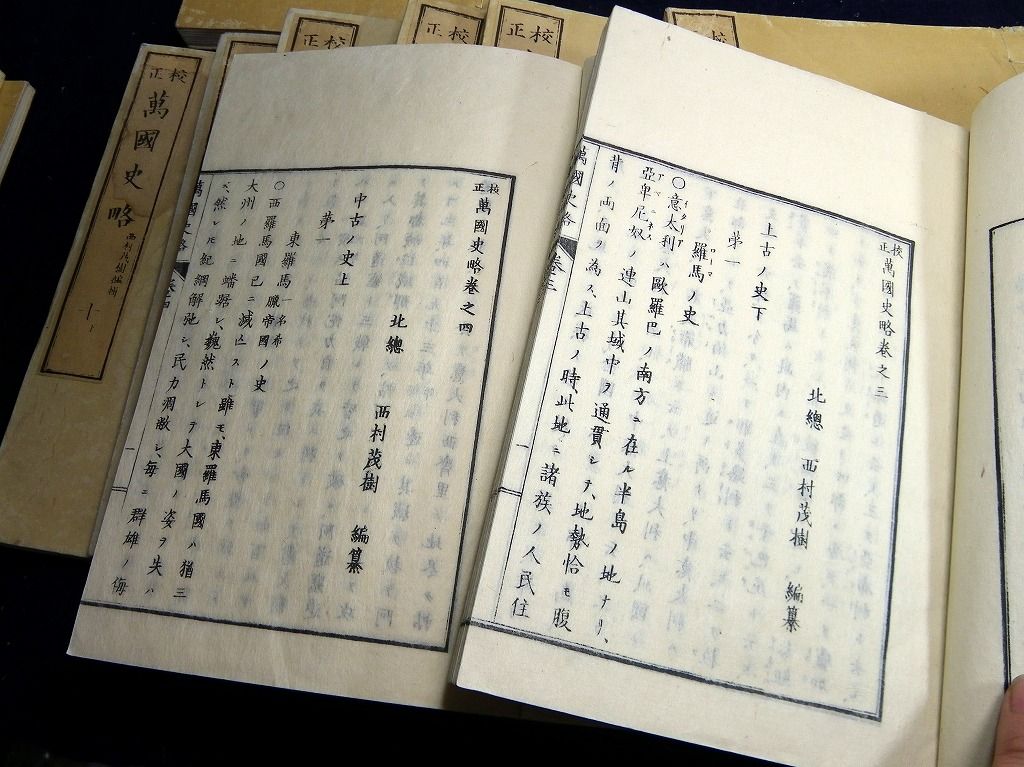 校正 萬國史略卷之三
北總 西村茂樹 編纂
上古ノ史下
第一
羅馬ノ史
ローマ
〇意太利ハ歐羅巴ノ南方ニ在ル半島ノ地ナリ、
イタリア
亞卑尼奴ノ連山其域中ヲ通貫シテ、地勢恰モ腹
アペニネス
背ノ両面ヲ為ス、上古ノ時、此地ニ諸族ノ人民住
萬國史略 卷三 一
校正 萬國史略卷之四
北總 西村茂樹 編纂
中古ノ史上
第一
東羅馬 一名希臘帝國 ノ史
〇西羅馬國已ニ滅亡スト雖モ、東羅馬國ハ猶三
大州ノ地ニ蟠踞シ、巍然トシテ大國ノ姿ヲ失ハ
ズ、然レモ紀綱解弛シ、民力凋敝シ、毎ニ群雄ノ侮
萬國史略 卷四 一
校正 萬國史略 西村茂樹編輯 十上
校正
校正
校正
校